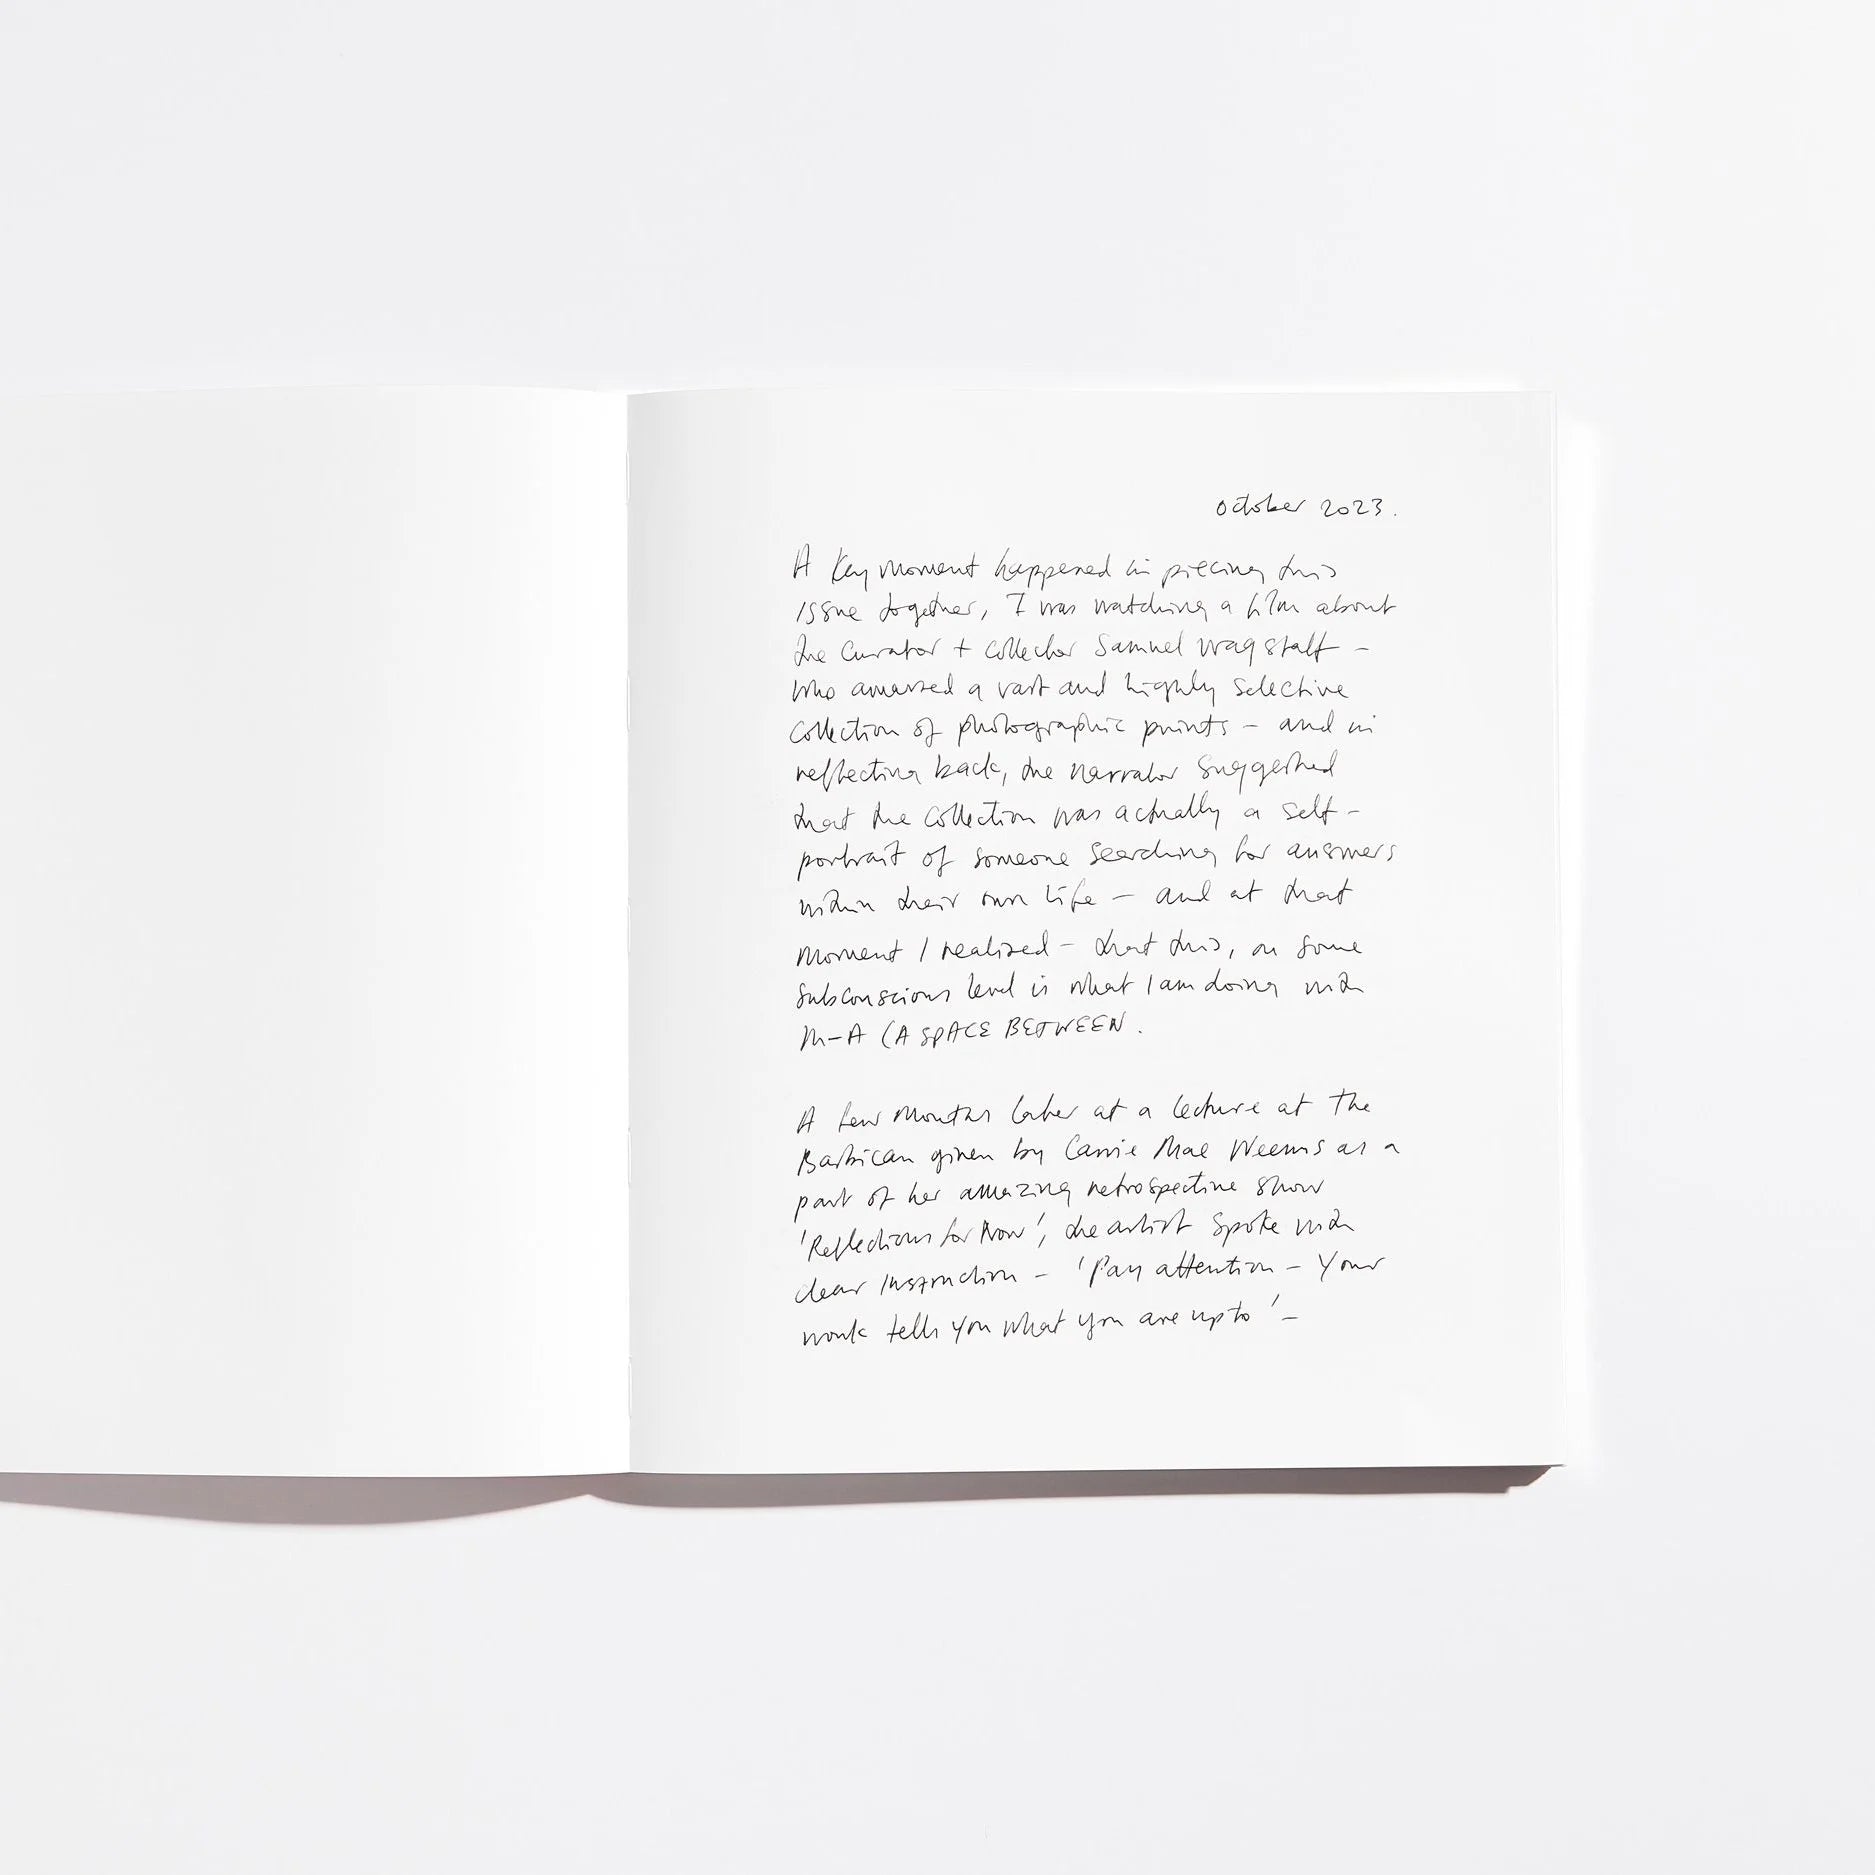 October 2023.
A key moment happened in piecing this
issue together, I was watching a film about
the curator + collector Samuel Wagstaff –
who amassed a vast and highly selective
collection of photographic prints – and in
reflecting back, the narrator suggested
that the collection was actually a self-
portrait of someone searching for answers
within their own life – and at that
moment I realised – that this, on some
subconscious level is what I am doing with
M–A (A SPACE BETWEEN.
A few months later at a lecture at The
Barbican given by Carrie Mae Weems as a
part of her amazing retrospective show
'Reflections for Now', the artist spoke with
clear instruction – 'Pay attention – Your
work tells you what you are up to' –